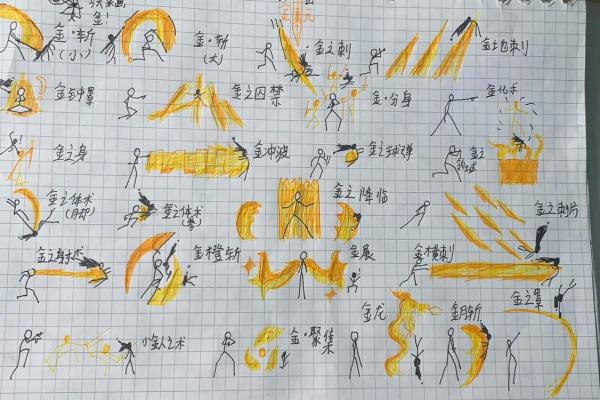 金!
金·斩
(小)
金·斩
(大)
金之刺
金地刺
金钟罩
金之囚禁
金·分身
金化术
金之身
金冲波
金之球弹
金之
金之体术
(月却)
金之体术
(拳)
金之降临
金之刺片
金之射术
金橙斩
金展
金横刺
小金人之术
金·聚集
金龙
金月斩
金之罩